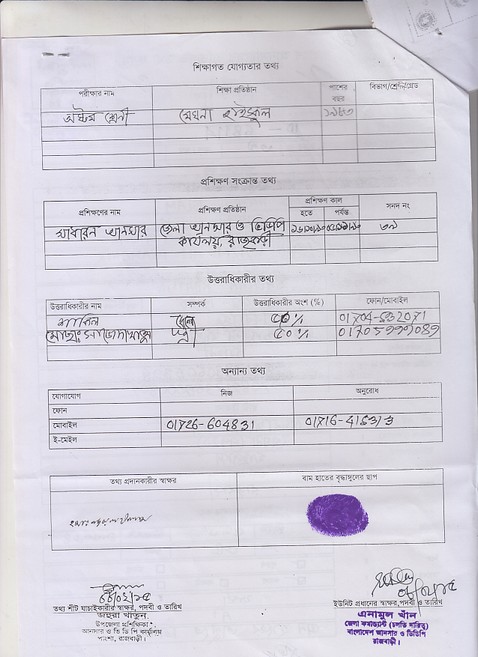 শিক্ষাগত যোগ্যতার তথ্য
পরীক্ষার নাম শিক্ষা প্রতিষ্ঠান পাশের বছর বিভাগ/শ্রেণি/গ্রেড
অষ্টম শ্রেণী মেঘনা হাইস্কুল
প্রশিক্ষণ সংক্রান্ত তথ্য
প্রশিক্ষণের নাম প্রশিক্ষণ প্রতিষ্ঠান প্রশিক্ষণ কাল সনদ নং
হতে পর্যন্ত
সাধারন আনসার জেলা আনসার ও ভিডিপি
কার্যলয়, রাজবাড়ী
উত্তরাধিকারীর তথ্য
উত্তরাধিকারীর নাম সম্পর্ক উত্তরাধিকারীর অংশ (%) ফোন/মোবাইল
ছেলে ৫০% 01704-532071
মোছাঃ স্ত্রী ৫০% 01705999089
অন্যান্য তথ্য
যোগাযোগ নিজ অনুরোধ
ফোন
মোবাইল 01726-604831
ই-মেইল
তথ্য প্রদানকারীর স্বাক্ষর বাম হাতের বৃদ্ধাঙ্গুলের ছাপ
তথ্য শীট যাচাইকারীর স্বাক্ষর, পদবী ও তারিখ
খাতুন
উপজেলা প্রশিক্ষিকা
আনসার ও ভি ডি পি কার্যালয়
পাংশা, রাজবাড়ী।
ইউনিট প্রধানের স্বাক্ষর, পদবী ও তারিখ
এনামুল খাঁন
জেলা কমান্ড্যান্ট (চলতি দায়িত্ব)
বাংলাদেশ আনসার ও ভিডিপি
রাজবাড়ী।